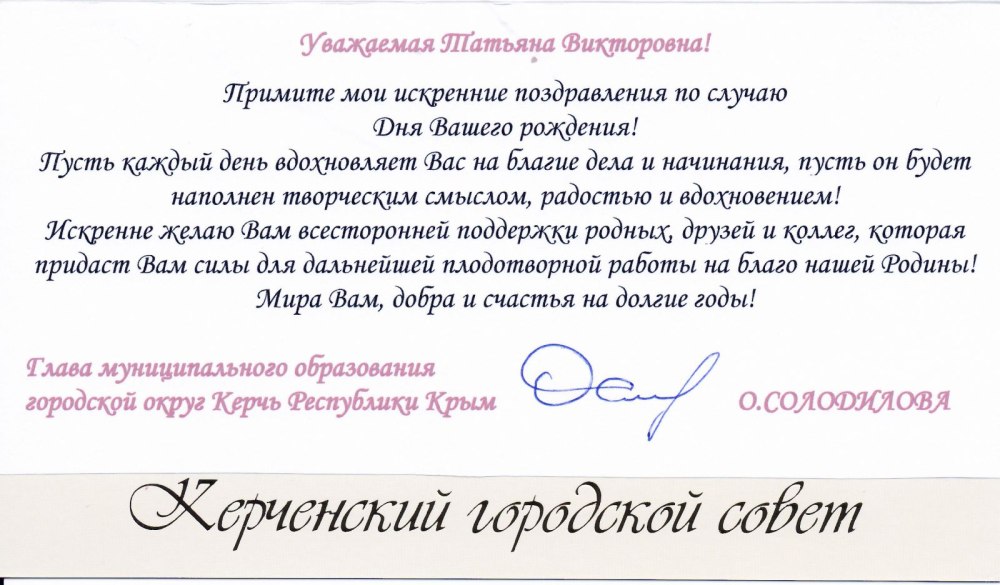 Уважаемая Татьяна Викторовна!
Примите мои искренние поздравления по случаю
Дня Вашего рождения!
Пусть каждый день вдохновляет Вас на благие дела и начинания, пусть он будет
наполнен творческим смыслом, радостью и вдохновением!
Искренне желаю Вам всесторонней поддержки родных, друзей и коллег, которая
придаст Вам силы для дальнейшей плодотворной работы на благо нашей Родины!
Мира Вам, добра и счастья на долгие годы!
Глава муниципального образования
городской округ Керчь Республики Крым
О.СОЛОДИЛОВА
Керченский городской совет